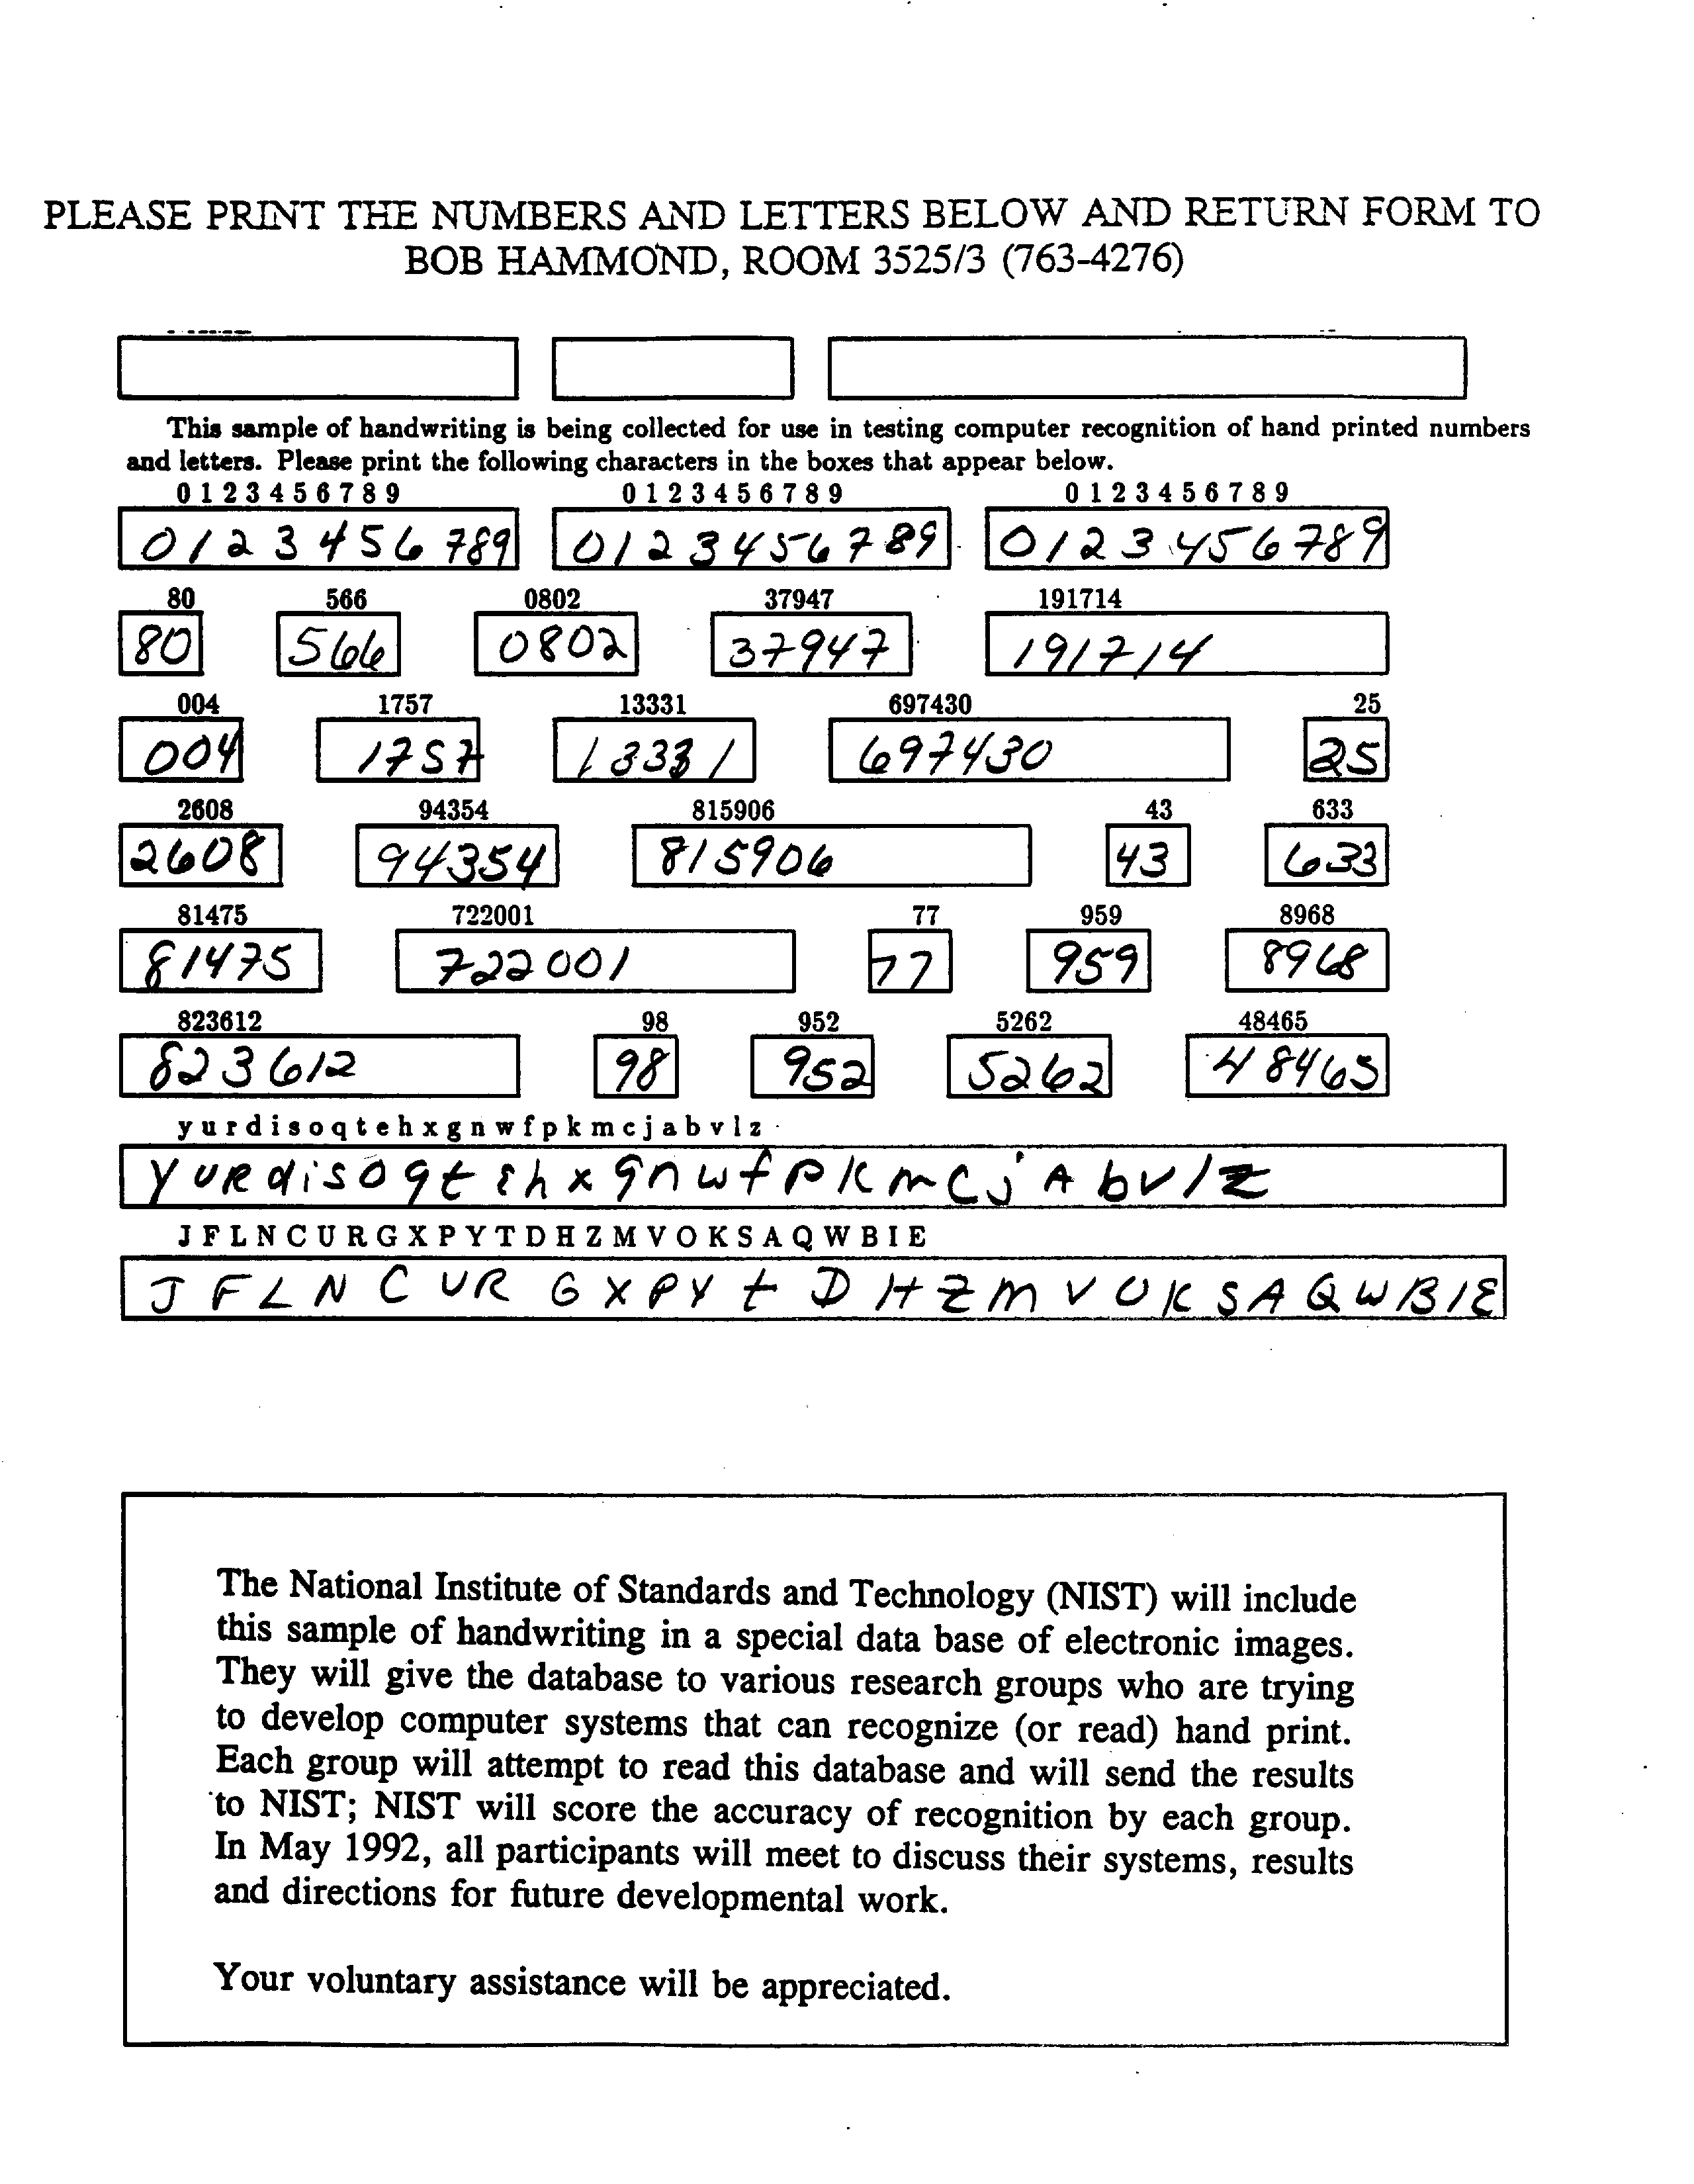 PLEASE PRINT THE NUMBERS AND LETTERS BELOW AND RETURN FORM TO
BOB HAMMOND, ROOM 3525/3 (763-4276)
This sample of handwriting is being collected for use in testing computer recognition of hand printed numbers
and letters. Please print the following characters in the boxes that appear below.
0 1 2 3 4 5 6 7 8 9 0 1 2 3 4 5 6 7 8 9 0 1 2 3 4 5 6 7 8 9
0 1 2 3 4 5 6 789 0 1 2 3 4 5 6 7 89 0 1 2 3 4 5 6 789
80 566 0802 37947 191714
80 566 0802 37947 191714
004 1757 13331 697430 25
004 1757 13331 697430 25
2608 94354 815906 43 633
2608 94354 815906 43 633
81475 722001 77 959 8968
81475 722001 77 959 8968
823612 98 952 5262 48465
823612 98 952 5262 48465
y u r d i s o q t e h x g n w f p k m c j a b v l z
y u R d i s o q t e h x g n w f p k m c j A b v l z
J F L N C U R G X P Y T D H Z M V O K S A Q W B I E
J F L N C U R G X P Y t D H Z M V O K S A Q W B I E
The National Institute of Standards and Technology (NIST) will include
this sample of handwriting in a special data base of electronic images.
They will give the database to various research groups who are trying
to develop computer systems that can recognize (or read) hand print.
Each group will attempt to read this database and will send the results
to NIST; NIST will score the accuracy of recognition by each group.
In May 1992, all participants will meet to discuss their systems, results
and directions for future developmental work.
Your voluntary assistance will be appreciated.